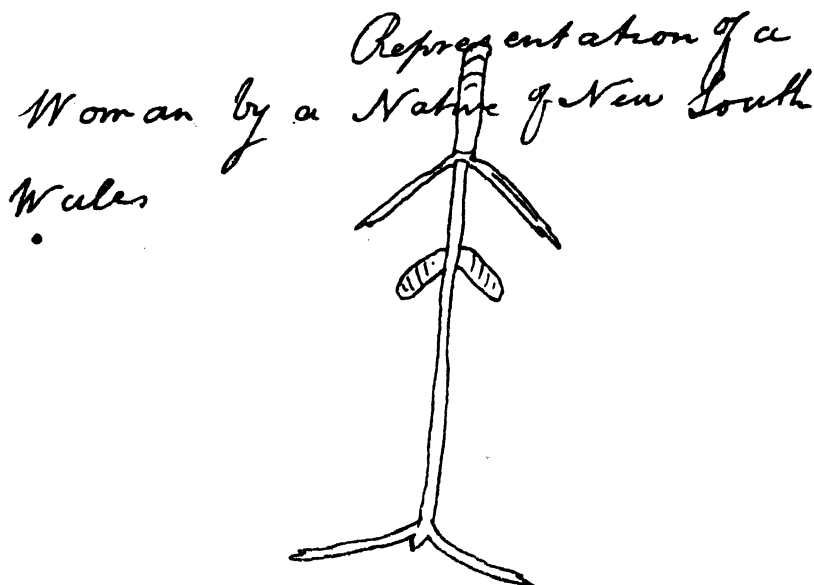 Representation of a
Woman by a Native of New South
Wales